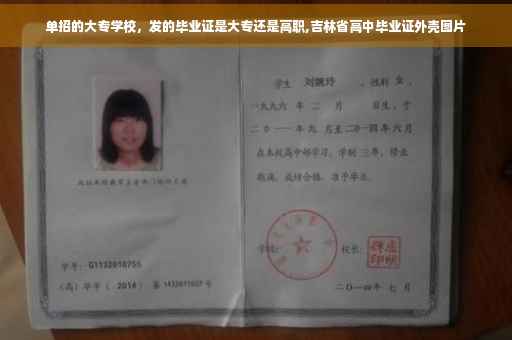 单招的大专学校，发的毕业证是大专还是高职,吉林省高中毕业证外壳图片
学生 刘婉玲 ，性别 女 ，
一九九六 年 二 月 日生，于
二〇一一 年 九 月至 二〇一四 年 六 月
在本校高中部学习，学制 三 年，修业
期满，成绩合格，准予毕业。
学校：
校长：
学号：G1132010755
（高）毕字（ 2014 ）第 1432011027 号
二〇一四年 七 月